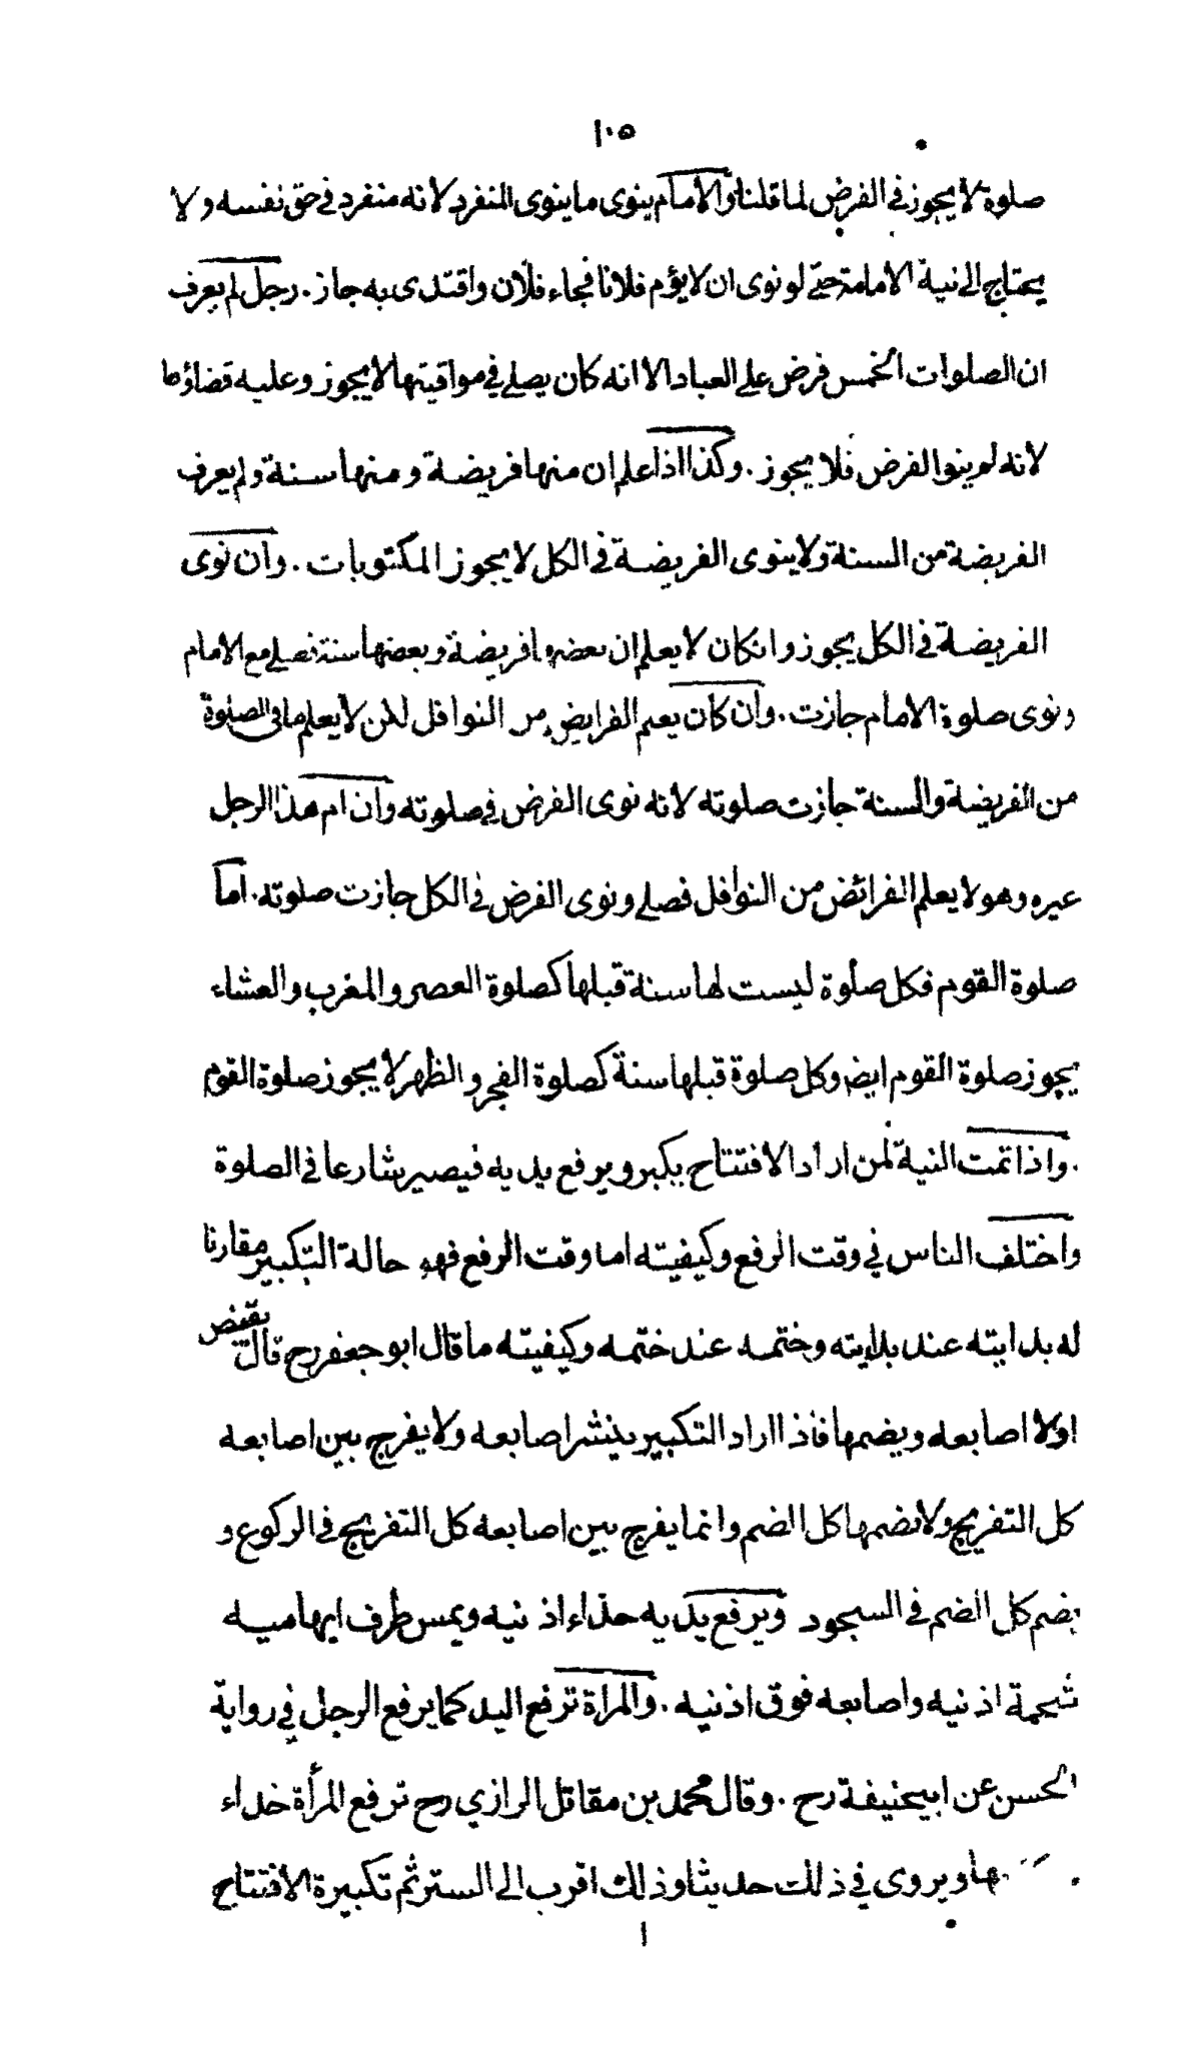 ١٠٥
صلوة لا يجوز في الفرض لما قلنا والامام ينوى ما ينوى المنفرد لانه منفرد في حق نفسه ولا
يحتاج الى نية الامامة حتى لو نوى ان لا يؤم فلانا فجاء فلان واقتدى به جاز . رجل لم يعرف
ان الصلوات الخمس فرض على العباد الا انه كان يصلے في مواقيتها لا يجوز وعليه قضاؤها
لانه لم ينو الفرض فلا يجوز . وكذا اذا علم ان منها فريضة ومنها سنة ولم يعرف
الفريضة من السنة ولا ينوى الفريضة في الكل لا يجوز المكتوبات . وان نوى
الفريضة في الكل يجوز وانكان لا يعلم ان بعضها فريضة وبعضها سنة فصلے مع الامام
ونوى صلوة الامام جازت . وان كان يعلم الفرايض من النوافل لكن لا يعلم ما في الصلوة
من الفريضة والسنة جازت صلوته لانه نوى الفرض في صلوته وان ام هذا الرجل
غيره وهو لا يعلم الفرائض من النوافل فصلے ونوى الفرض في الكل جازت صلوته . اما
صلوة القوم فكل صلوة ليست لها سنة قبلها كصلوة العصر والمغرب والعشاء
يجوز صلوة القوم ايض وكل صلوة قبلها سنة كصلوة الفجر والظهر لا يجوز صلوة القوم
. واذا تمت النية لمن اراد الافتتاح يكبر ويرفع يديه فيصير شارعا في الصلوة
واختلف الناس في وقت الرفع وكيفيته اما وقت الرفع فهو حالة التكبير مقارنا
له بدايته عند بدايته وختمه عند ختمه وكيفيته ما قال ابو جعفر رح قال يقبض
اولا اصابعه ويضمها فاذا اراد التكبير ينشر اصابعه ولا يفرج بين اصابعه
كل التفريج ولا يضمها كل الضم وانما يفرج بين اصابعه كل التفريج في الركوع و
يضم كل الضم في السجود ويرفع يديه حذاء اذنيه ويمس طرف ابهاميه
شحمة اذنيه واصابعه فوق اذنيه . والمراة ترفع اليد كما يرفع الرجل في رواية
الحسن عن ابيحنيفة رح . وقال محمد بن مقاتل الرازي رح ترفع المرأة حذاء
ويروى في ذلك حديثا وذلك اقرب الى الستر ثم تكبيرة الافتتاح